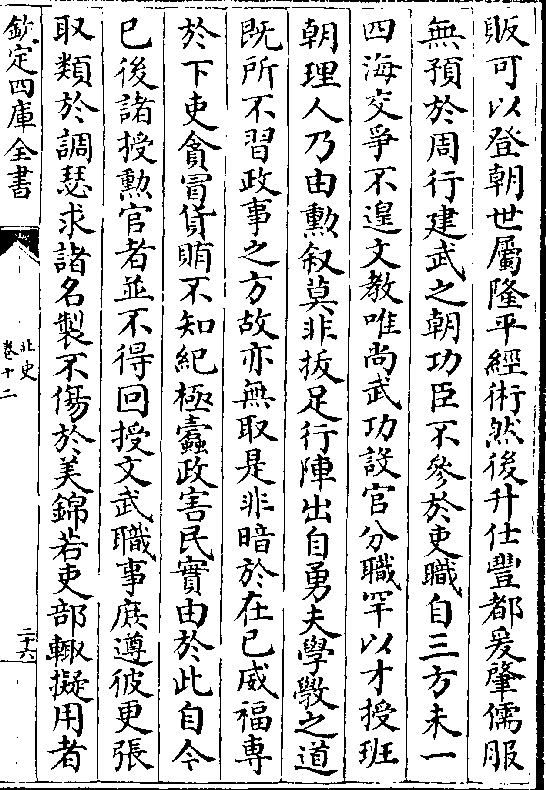 販可以登朝世屬隆平經術然後升仕豐都爰肇儒服
無預於周行建武之朝功臣不參於吏職自三方未一
四海交爭不遑文教唯尚武功設官分職罕以才授班
朝理人乃由勲敘莫非拔足行陣出自勇夫學斆之道
既所不習政事之方故亦無取是非暗於在己威福専
於下吏貪冐貨賄不知紀極蠧政害民實由於此自今
已後諸授勲官者並不得回授文武職事庶遵彼更張
取類於調瑟求諸名製不傷於美錦若吏部輙擬用者
欽定四庫全書
北史
卷十二
二十六